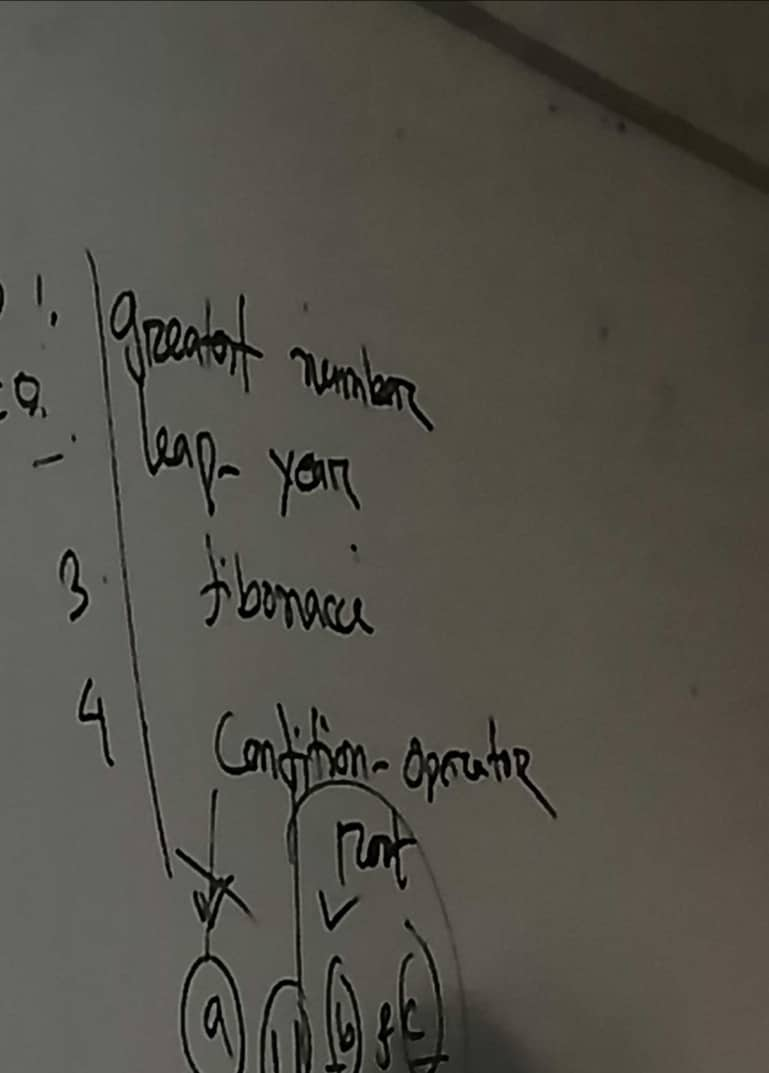 greatest number
leap- year
3. fibonacci
4 Condition-operator
a b & c